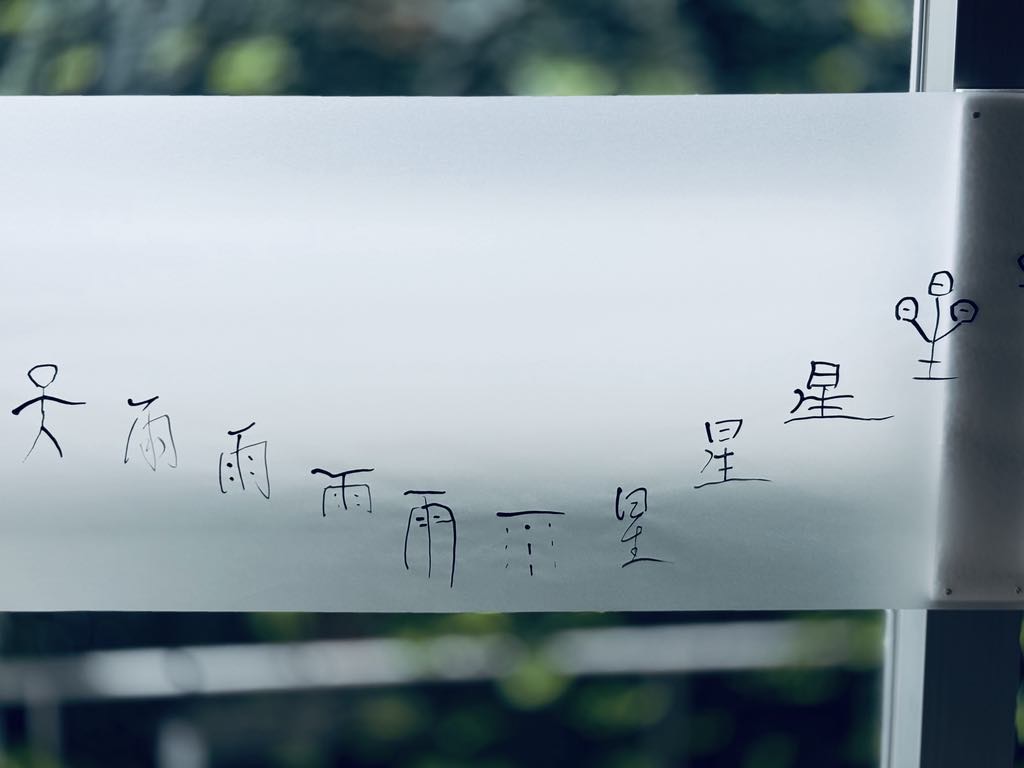 雨雨雨雨雨星星星